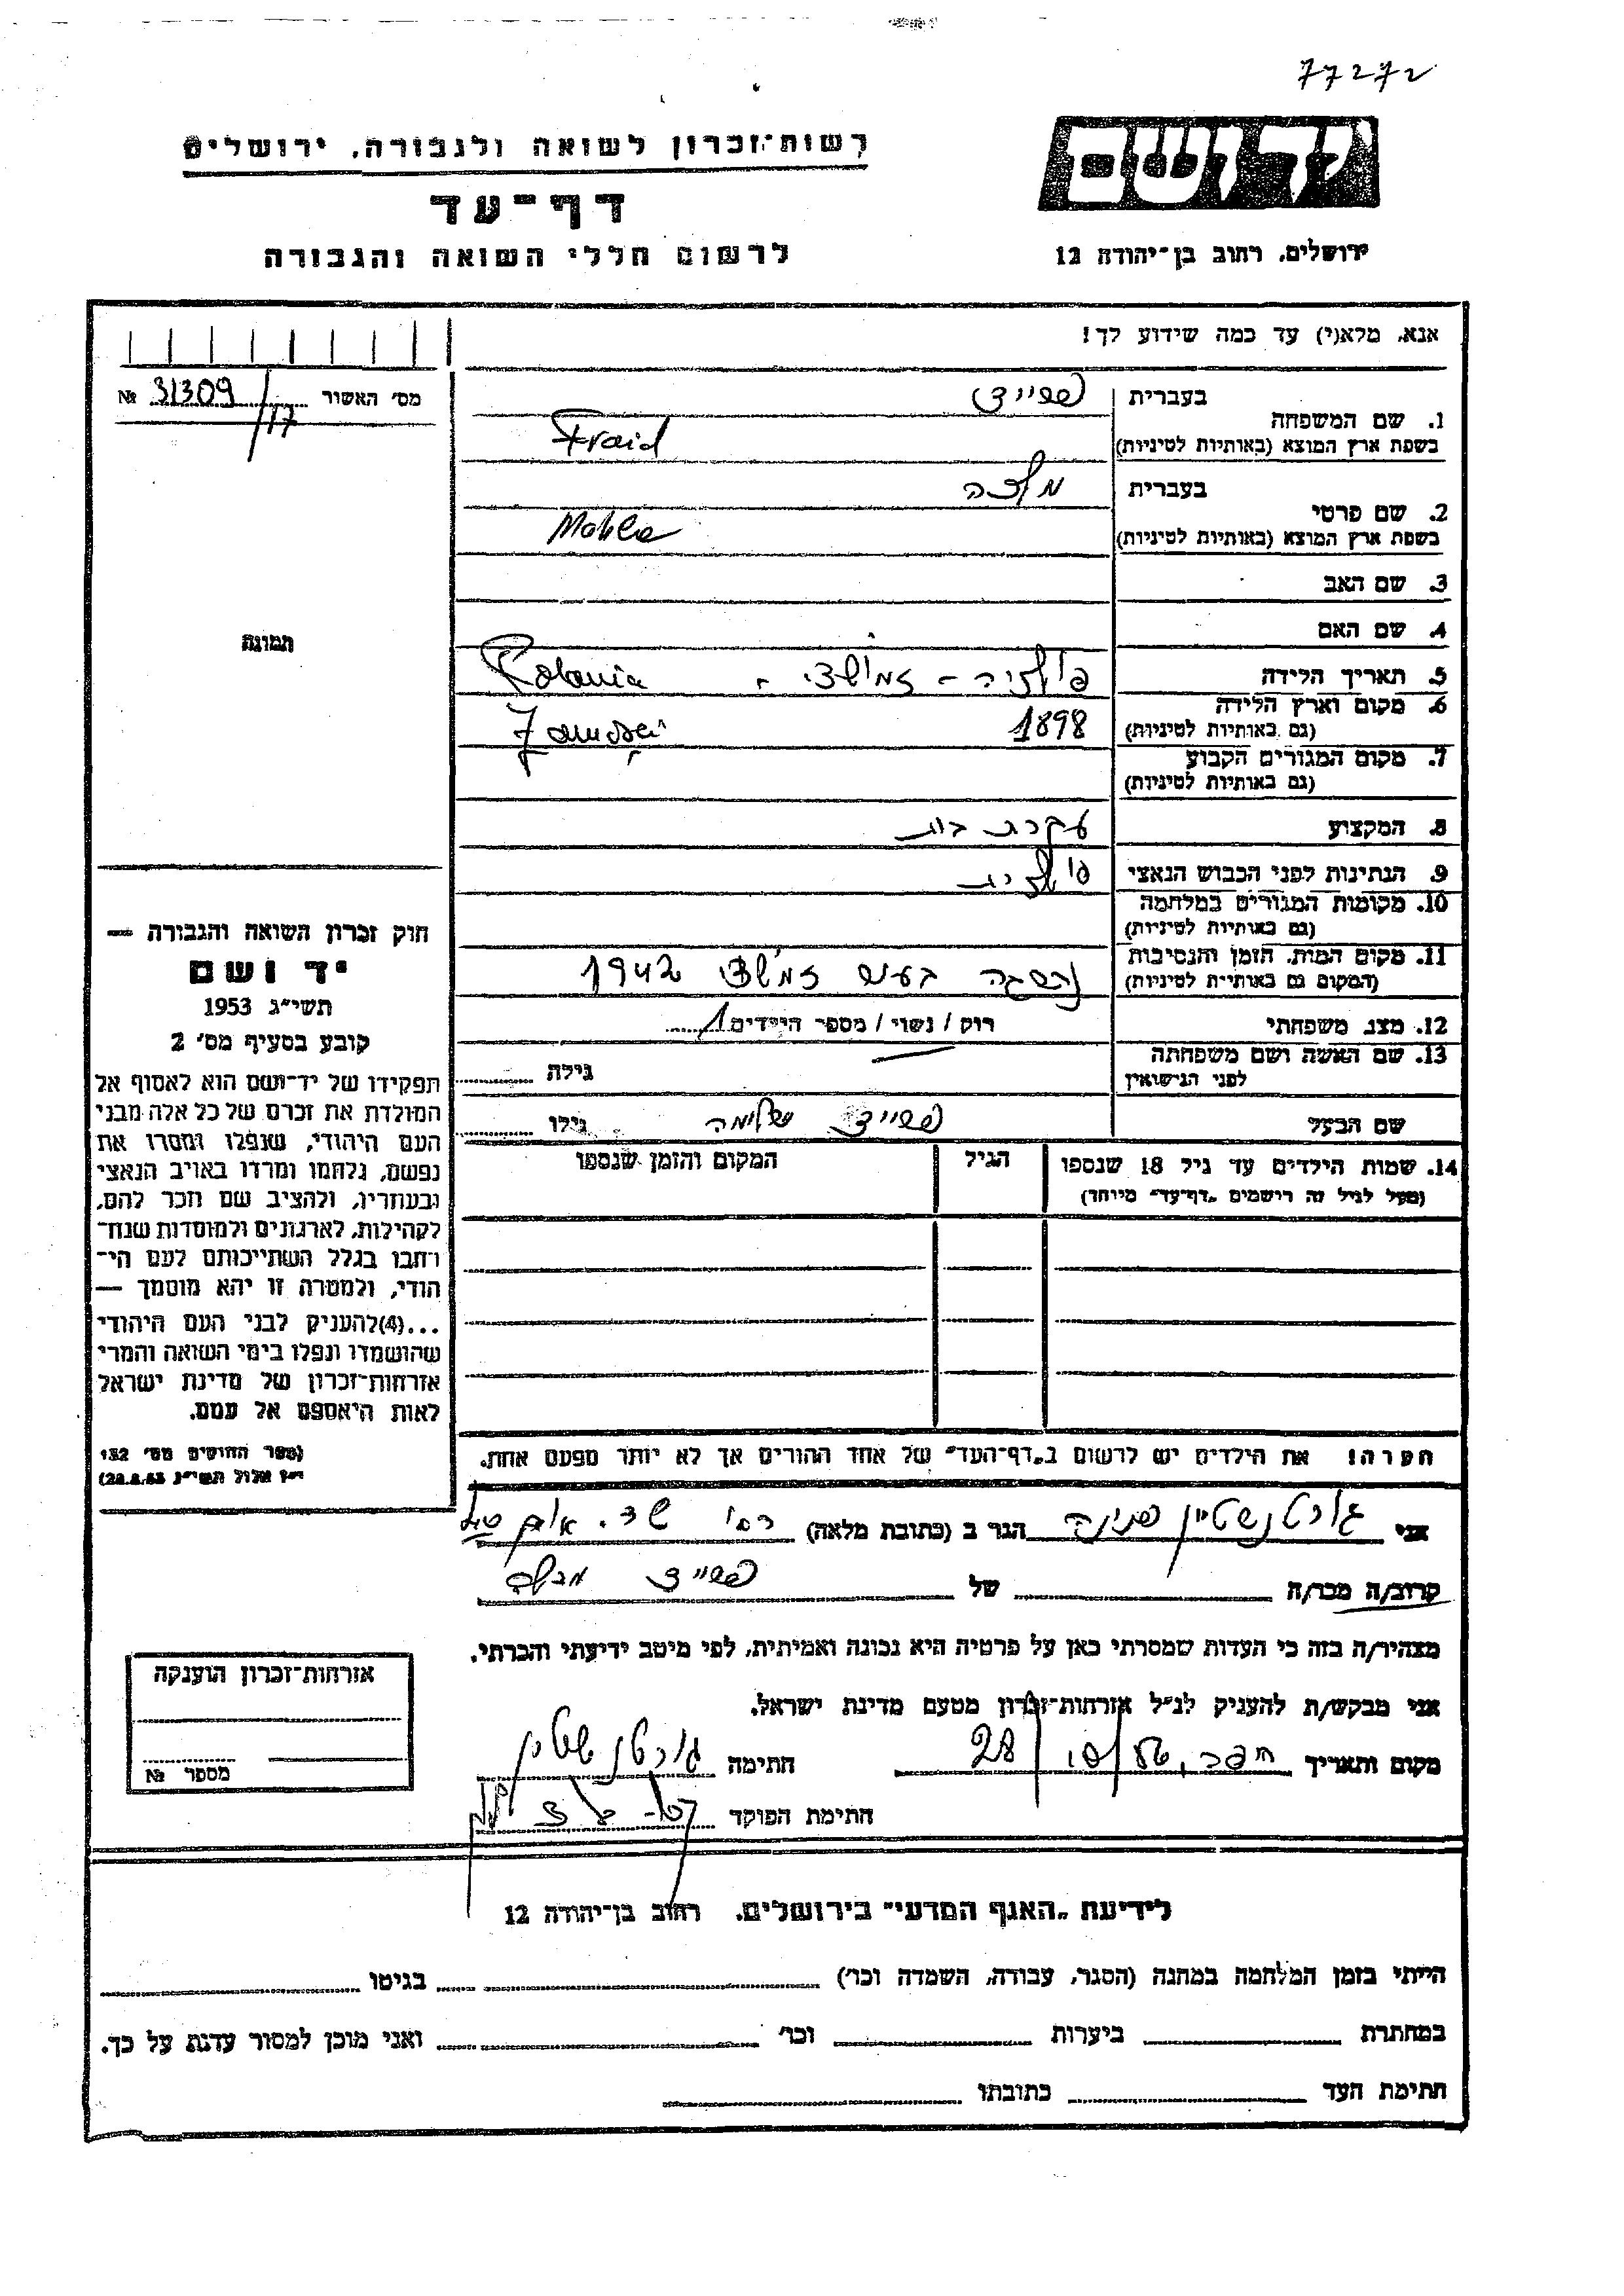 77272
יד ושם
רשות-זכרון לשואה ולגבורה, ירושלים
דף-עד
לרשום חללי השואה והגבורה
ירושלים, רחוב בן-יהודה 12
אנא, מלא(י) עד כמה שידוע לך!
מס' האשור № 31309/17
1. שם המשפחה
בעברית
בשפת ארץ המוצא (באותיות לטיניות)
Fraid
2. שם פרטי
בעברית
בשפת ארץ המוצא (באותיות לטיניות)
3. שם האב
4. שם האם
5. תאריך הלידה
פולניה - זמושץ -
6. מקום וארץ הלידה
(גם באותיות לטיניות)
1898
7. מקום המגורים הקבוע
(גם באותיות לטיניות)
8. המקצוע
עקרת בית
9. הנתינות לפני הכבוש הנאצי
פולנית
10. מקומות המגורים במלחמה
(גם באותיות לטיניות)
11. מקום המות, הזמן והנסיבות
(המקום גם באותיות לטיניות)
נהרגה בעיר זמושץ 1942
12. מצב משפחתי
רוק / נשוי / מספר הילדים 1
13. שם האשה ושם משפחתה
לפני הנישואין
גילה
שם הבעל
שלמה
גילו
14. שמות הילדים עד גיל 18 שנספו
(מעל לגיל זה רושמים "דף-עד" מיוחד)
הגיל
המקום והזמן שנספו
תמונה
חוק זכרון השואה והגבורה —
יד ושם
תשי"ג 1953
קובע בסעיף מס' 2
תפקידו של יד-ושם הוא לאסוף אל
המולדת את זכרם של כל אלה מבני
העם היהודי, שנפלו ומסרו את
נפשם, נלחמו ומרדו באויב הנאצי
ובעוזריו, ולהציב שם וזכר להם,
לקהילות, לארגונים ולמוסדות שנח-
רבו בגלל השתייכותם לעם הי-
הודי, ולמטרה זו יהא מוסמך —
...(4) להעניק לבני העם היהודי
שהושמדו ונפלו בימי השואה והמרי
אזרחות-זכרון של מדינת ישראל
לאות היאספם אל עמם.
(ספר החוקים מס' 132
י"ז אלול תשי"ג 28.8.53)
הערה! את הילדים יש לרשום ב"דף-העד" של אחד ההורים אך לא יותר מפעם אחת.
אני גורטנשטיין פנינה הגר ב (כתובת מלאה)
קרוב/ה מכר/ה של
מצהיר/ה בזה כי העדות שמסרתי כאן על פרטיה היא נכונה ואמיתית, לפי מיטב ידיעתי והכרתי.
אני מבקש/ת להעניק לנ"ל אזרחות-זכרון מטעם מדינת ישראל.
מקום ותאריך
חתימה גורטנשטיין
חתימת הפוקד
אזרחות-זכרון הוענקה
מספר №
לידיעת "האגף המדעי" בירושלים, רחוב בן-יהודה 12
הייתי בזמן המלחמה במחנה (הסגר, עבודה, השמדה וכו') בגיטו
במחתרת ביערות וכו' ואני מוכן למסור עדות על כך.
חתימת העד כתובתו